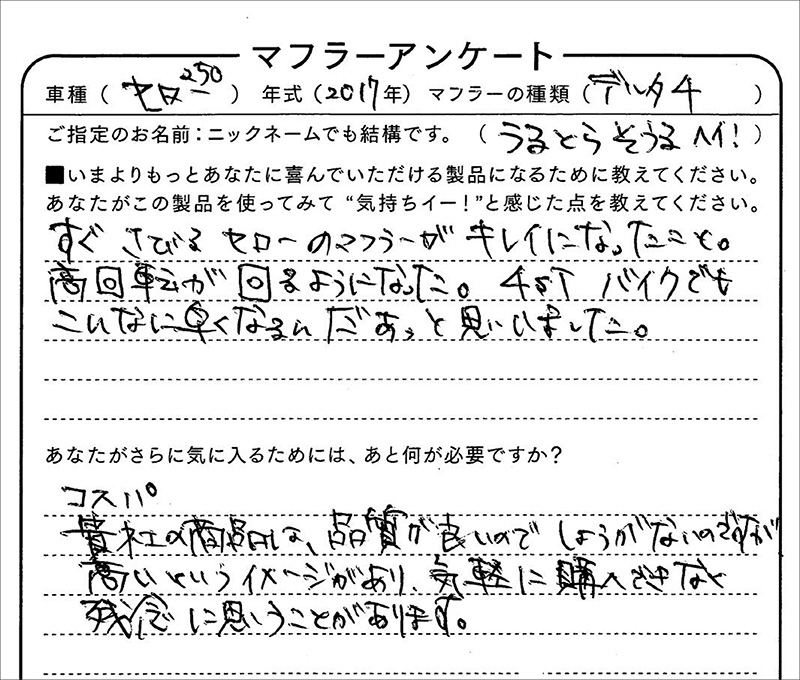 マフラーアンケート
車種（ セロー250 ） 年式（2017年） マフラーの種類（ デルタ4 ）
ご指定のお名前：ニックネームでも結構です。（ うるとらそうるヘイ! ）
■いまよりもっとあなたに喜んでいただける製品になるために教えてください。
あなたがこの製品を使ってみて“気持ちイー！”と感じた点を教えてください。
すぐさびるセローのマフラーがキレイになったこと。
高回転が回るようになった。4ST バイクでも
こんなに早くなるんだぁっと思いました。
あなたがさらに気に入るためには、あと何が必要ですか？
コスパ
貴社の商品は、品質が良いのでしょうがないのですが
高いというイメージがあり、気軽に購入できなく
残念に思うことがあります。